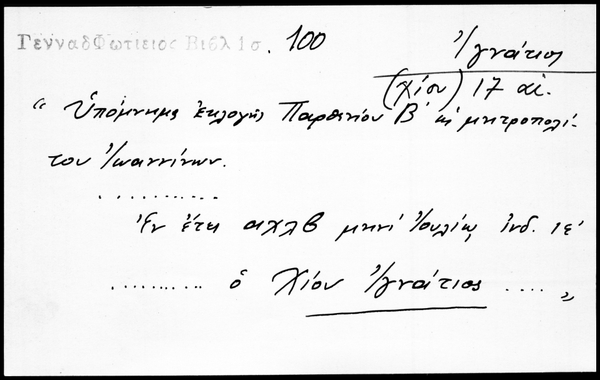 ΓενναδΦωτιειος Βιβλ 1σ. 100
Ἰγνάτιος
(Χίου) 17 αἰ.
“ Ὑπόμνημα ἐκλογῆς Παρθενίου Β΄ ὡς μητροπολί-
του Ἰωαννίνων.
. . . . . . . . . . .
Ἐν ἔτει αχλβ μηνί Ἰουλίῳ ἰνδ. ιε΄
. . . . . . . . . ὁ Χίου Ἰγνάτιος . . . . „